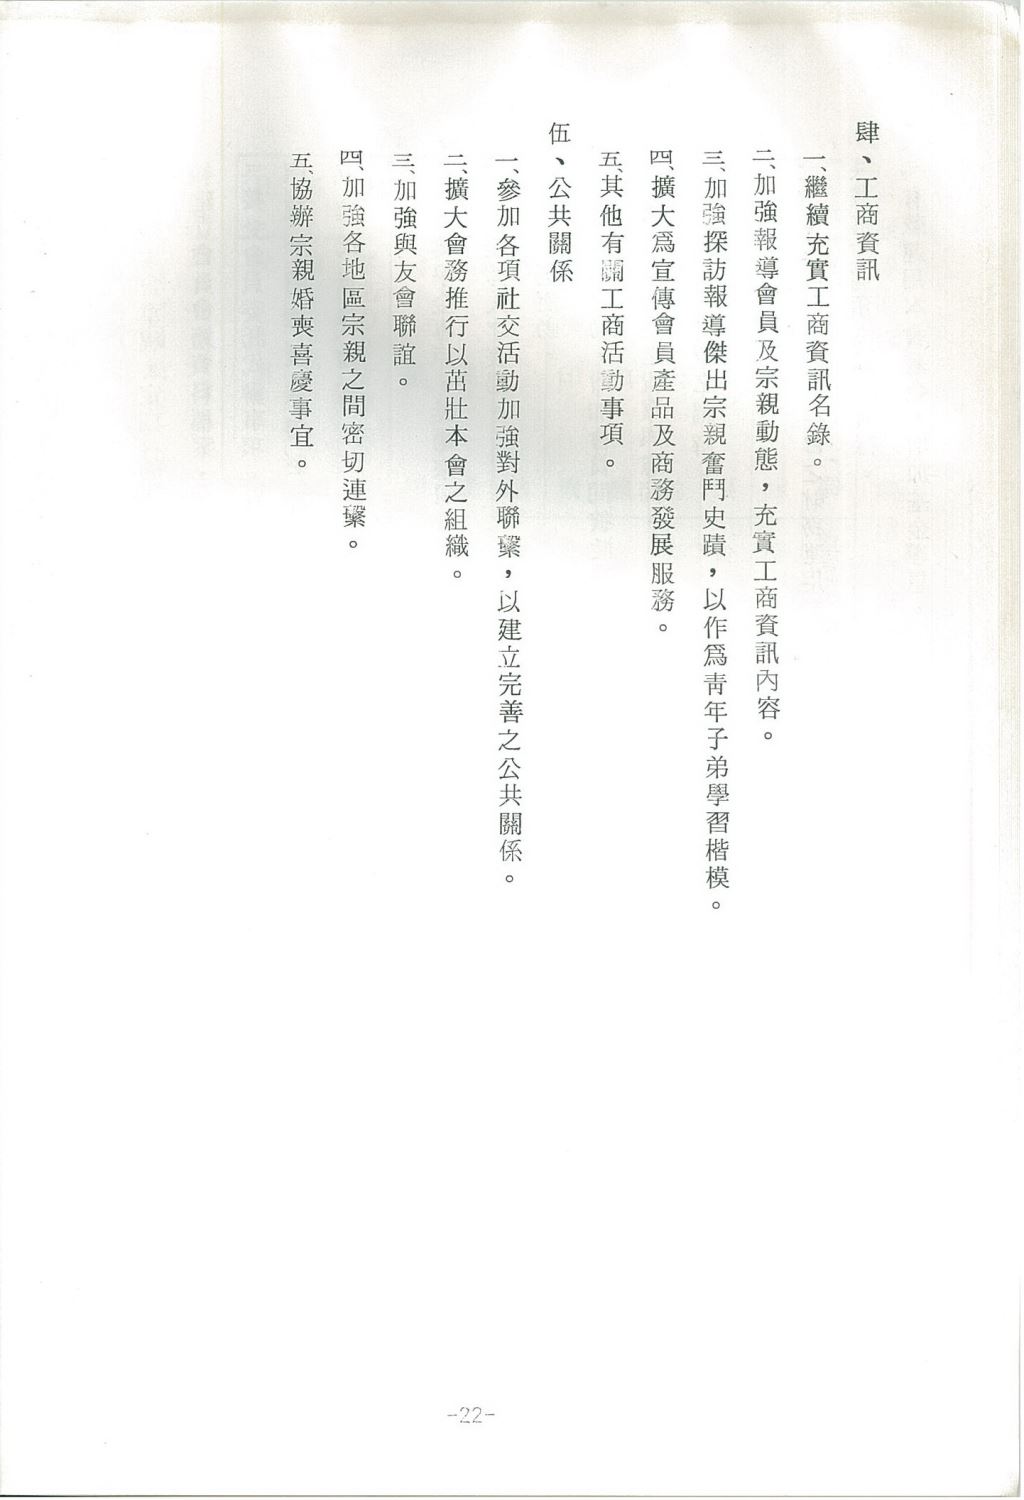 肆、工商資訊
一、繼續充實工商資訊名錄。
二、加強報導會員及宗親動態，充實工商資訊內容。
三、加強探訪報導傑出宗親奮鬥史蹟，以作爲靑年子弟學習楷模。
四、擴大爲宣傳會員產品及商務發展服務。
五、其他有關工商活動事項。
伍、公共關係
一、參加各項社交活動加強對外聯繫，以建立完善之公共關係。
二、擴大會務推行以茁壯本會之組織。
三、加強與友會聯誼。
四、加強各地區宗親之間密切連繫。
五、協辦宗親婚喪喜慶事宜。
-22-